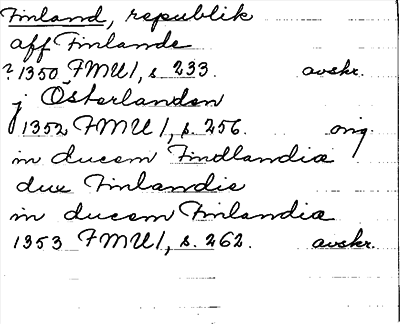 Finland, republik
aff Finlande
? 1350 FMU 1, s. 233. avskr.
j Österlanden
1352 FMU 1, s. 256. orig.
in ducem Findlandia
dux Finlandie
in ducem Finlandia
1353 FMU 1, s. 262. avskr.